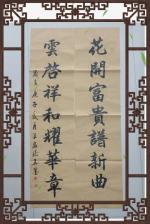 花開富貴譜新曲
雲啓祥和耀華章